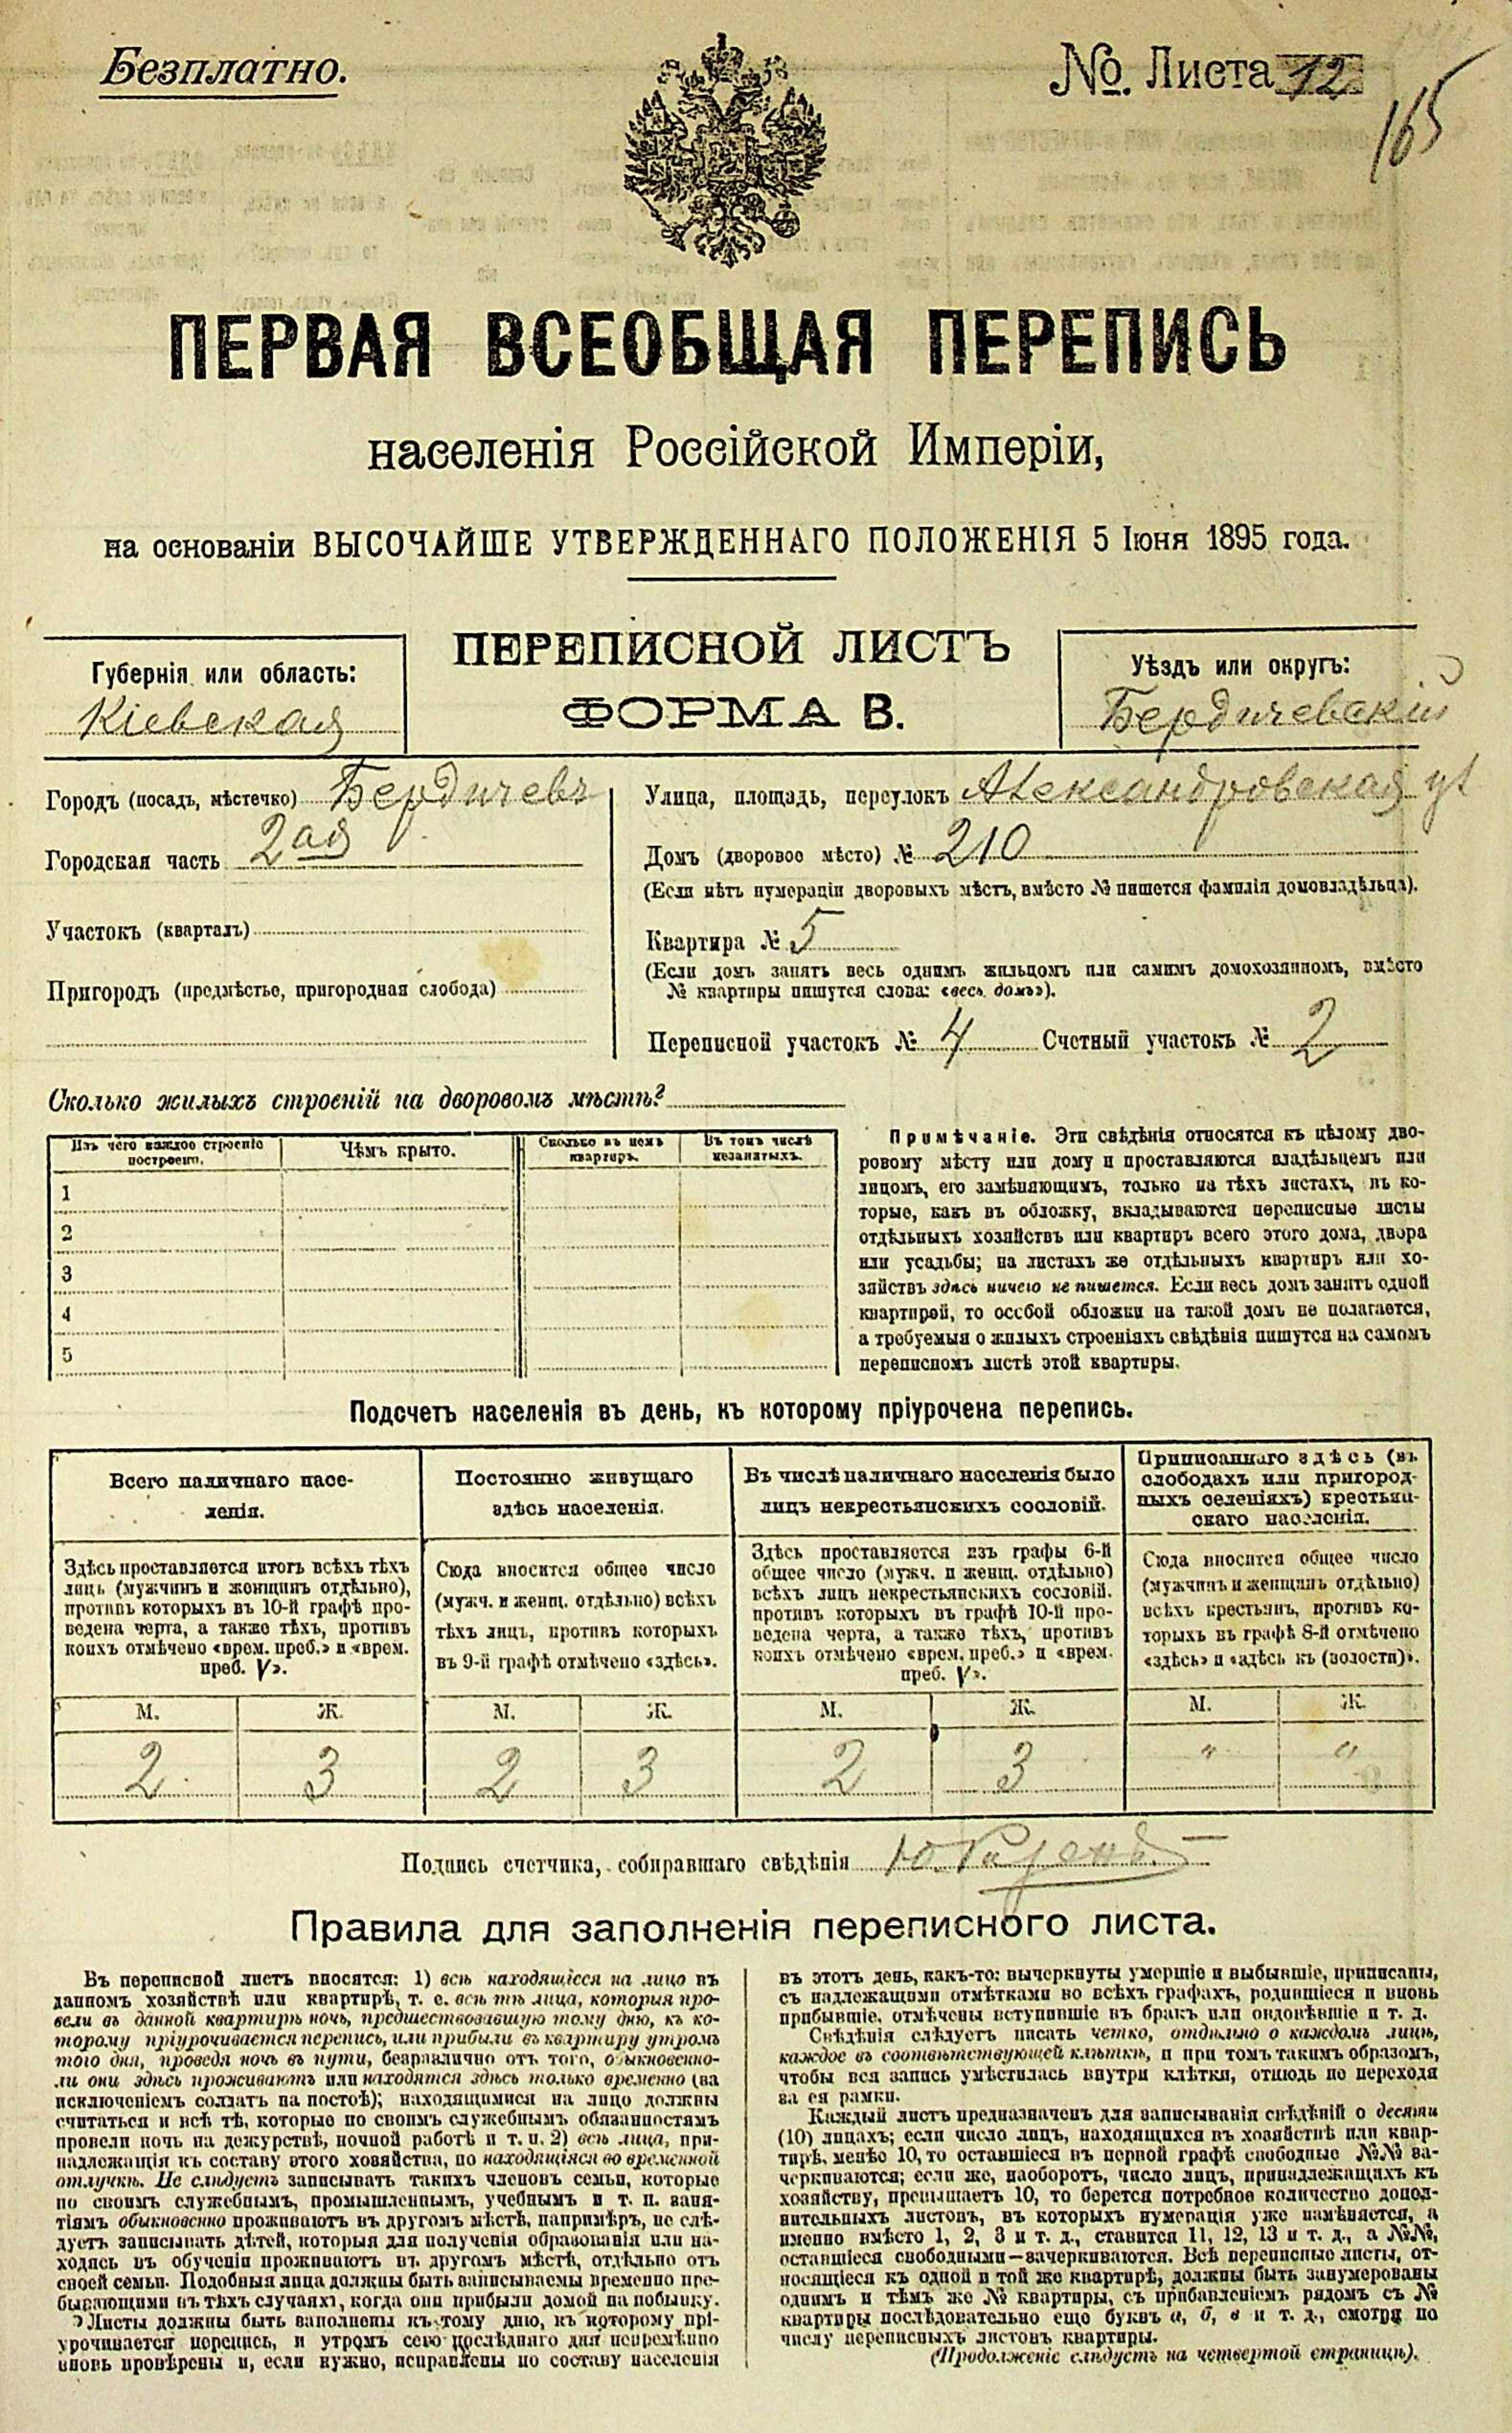 Безплатно.
№. Листа 12
165
ПЕРВАЯ ВСЕОБЩАЯ ПЕРЕПИСЬ
населенія Россійской Имперіи,
на основаніи ВЫСОЧАЙШЕ УТВЕРЖДЕННАГО ПОЛОЖЕНІЯ 5 Іюня 1895 года.
ПЕРЕПИСНОЙ ЛИСТЪ
ФОРМА В.
Губернія или область:
Кіевская
Уѣздъ или округъ:
Бердичевскій
Городъ (посадъ, мѣстечко) Бердичевъ
Городская часть 2ая
Участокъ (кварталъ)
Пригородъ (предмѣстье, пригородная слобода)
Улица, площадь, переулокъ Александровская ул
Домъ (дворовое мѣсто) № 210
(Если нѣтъ нумераціи дворовыхъ мѣстъ, вмѣсто № пишется фамилія домовладѣльца).
Квартира № 5
(Если домъ занятъ весь однимъ жильцомъ или самимъ домохозяиномъ, вмѣсто
№ квартиры пишутся слова: «весь домъ»).
Переписной участокъ № 4 Счетный участокъ № 2
Сколько жилыхъ строеній на дворовомъ мѣстѣ?
Изъ чего каждое строеніе
построено.
Чѣмъ крыто.
Сколько въ немъ
квартиръ.
Въ томъ числѣ
незанятыхъ.
1
2
3
4
5
Примѣчаніе. Эти свѣдѣнія относятся къ цѣлому дво-
ровому мѣсту или дому и проставляются владѣльцемъ или
лицомъ, его замѣняющимъ, только на тѣхъ листахъ, въ ко-
торые, какъ въ обложку, вкладываются переписные листы
отдѣльныхъ хозяйствъ или квартиръ всего этого дома, двора
или усадьбы; на листахъ же отдѣльныхъ квартиръ или хо-
зяйствъ здѣсь ничего не пишется. Если весь домъ занятъ одной
квартирой, то особой обложки на такой домъ не полагается,
а требуемыя о жилыхъ строеніяхъ свѣдѣнія пишутся на самомъ
переписномъ листѣ этой квартиры.
Подсчетъ населенія въ день, къ которому пріурочена перепись.
Всего наличнаго насе-
ленія.
Здѣсь проставляется итогъ всѣхъ тѣхъ
лицъ (мужчинъ и женщинъ отдѣльно),
противъ которыхъ въ 10-й графѣ про-
ведена черта, а также тѣхъ, противъ
коихъ отмѣчено «врем. преб.» и «врем.
преб. V».
Постоянно живущаго
здѣсь населенія.
Сюда вносится общее число
(мужч. и женщ. отдѣльно) всѣхъ
тѣхъ лицъ, противъ которыхъ
въ 9-й графѣ отмѣчено «здѣсь».
Въ числѣ наличнаго населенія было
лицъ некрестьянскихъ сословій.
Здѣсь проставляется изъ графы 6-й
общее число (мужч. и женщ. отдѣльно)
всѣхъ лицъ некрестьянскихъ сословій,
противъ которыхъ въ графѣ 10-й про-
ведена черта, а также тѣхъ, противъ
коихъ отмѣчено «врем. преб.» и «врем.
преб. V».
Приписаннаго здѣсь (въ
слободахъ или пригород-
ныхъ селеніяхъ) крестьян-
скаго населенія.
Сюда вносится общее число
(мужчинъ и женщинъ отдѣльно)
всѣхъ крестьянъ, противъ ко-
торыхъ въ графѣ 8-й отмѣчено
«здѣсь» и «здѣсь къ (волости)».
М. Ж. М. Ж. М. Ж. М. Ж.
2 3 2 3 2 3 " "
Подпись счетчика, собиравшаго свѣдѣнія
Правила для заполненія переписного листа.
Въ переписной листъ вносятся: 1) всѣ находящіеся на лицо въ
данномъ хозяйствѣ или квартирѣ, т. е. всѣ тѣ лица, которыя про-
вели въ данной квартирѣ ночь, предшествовавшую тому дню, къ ко-
торому пріурочивается перепись, или прибыли въ квартиру утромъ
того дня, проведя ночь въ пути, безразлично отъ того, обыкновенно-
ли они здѣсь проживаютъ или находятся здѣсь только временно (за
исключеніемъ солдатъ на постоѣ); находящимися на лицо должны
считаться и всѣ тѣ, которые по своимъ служебнымъ обязанностямъ
провели ночь на дежурствѣ, ночной работѣ и т. п. 2) всѣ лица, при-
надлежащія къ составу этого хозяйства, но находящіяся во временной
отлучкѣ. Не слѣдуетъ записывать такихъ членовъ семьи, которые
по своимъ служебнымъ, промышленнымъ, учебнымъ и т. п. заня-
тіямъ обыкновенно проживаютъ въ другомъ мѣстѣ, напримѣръ, не слѣ-
дуетъ записывать дѣтей, которыя для полученія образованія или на-
ходясь въ обученіи проживаютъ въ другомъ мѣстѣ, отдѣльно отъ
своей семьи. Подобныя лица должны быть записываемы временно пре-
бывающими въ тѣхъ случаяхъ, когда они прибыли домой на побывку.
Листы должны быть заполнены къ тому дню, къ которому прі-
урочивается перепись, и утромъ сего послѣдняго дня непремѣнно
вновь провѣрены и, если нужно, исправлены по составу населенія
въ этотъ день, какъ-то: вычеркнуты умершіе и выбывшіе, приписаны,
съ надлежащими отмѣтками во всѣхъ графахъ, родившіеся и вновь
прибывшіе, отмѣчены вступившіе въ бракъ или овдовѣвшіе и т. д.
Свѣдѣнія слѣдуетъ писать четко, отдѣльно о каждомъ лицѣ,
каждое въ соотвѣтствующей клѣткѣ, и при томъ такимъ образомъ,
чтобы вся запись умѣстилась внутри клѣтки, отнюдь не переходя
за ея рамки.
Каждый листъ предназначенъ для записыванія свѣдѣній о десяти
(10) лицахъ; если число лицъ, находящихся въ хозяйствѣ или квар-
тирѣ, менѣе 10, то оставшіеся въ первой графѣ свободные №№ за-
черкиваются; если же, наоборотъ, число лицъ, принадлежащихъ къ
хозяйству, превышаетъ 10, то берется потребное количество допол-
нительныхъ листовъ, въ которыхъ нумерація уже измѣняется, а
именно вмѣсто 1, 2, 3 и т. д., ставится 11, 12, 13 и т. д., а №№,
оставшіеся свободными—зачеркиваются. Всѣ переписные листы, от-
носящіеся къ одной и той же квартирѣ, должны быть занумерованы
однимъ и тѣмъ же № квартиры, съ прибавленіемъ рядомъ съ №
квартиры послѣдовательно еще буквъ а, б, в и т. д., смотря по
числу переписныхъ листовъ квартиры.
(Продолженіе слѣдуетъ на четвертой страницѣ).